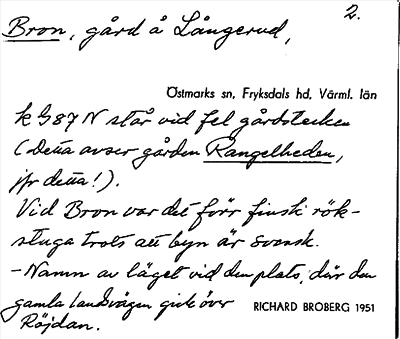 2.
Bron, gård å Långerud,
Östmarks sn, Fryksdals hd, Värml. län
k G87 N står vid fel gårdstecken
(Detta avser gården Rangelheden,
jfr detta!).
Vid Bron var det förr finsk rök-
stuga trots att byn är svensk.
- Namn av läget vid den plats, där den
gamla landsvägen gick över
RICHARD BROBERG 1951
Röjdan.